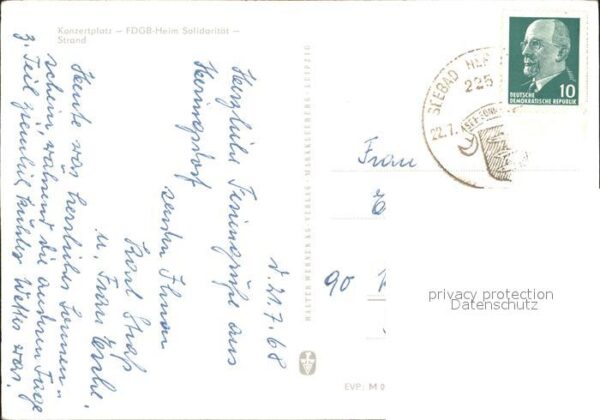 Konzertplatz — FDGB-Heim Solidarität —
Strand
d. 21.7.68
Herzliche Feriengrüße aus
Heringsdorf
senden Ihnen
Karl
u. Frau
Heute war herrlicher Sonnen-
schein, während die anderen Tage
z. Teil ziemlich kühles Wetter war.
WALTER WERNER KG VERLAG · MARKKLEEBERG - LEIPZIG
EVP: M 0
SEEBAD HER
225
22.7.
DEUTSCHE
DEMOKRATISCHE REPUBLIK
10
Frau
90
privacy protection
Datenschutz